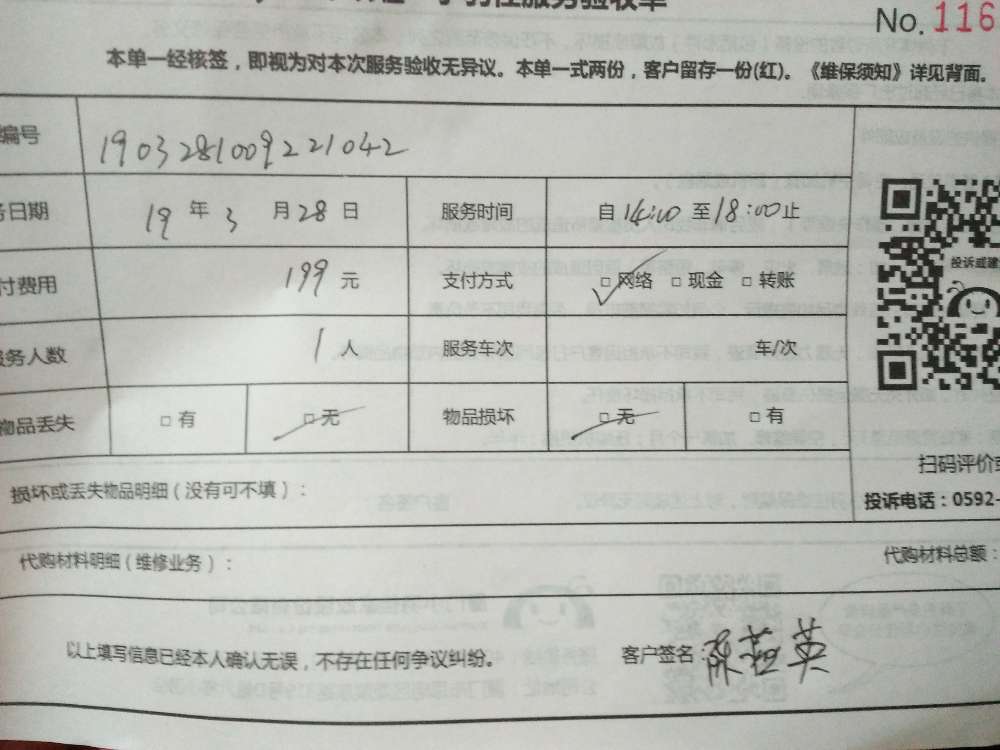 服务验收单
No.116
本单一经核签，即视为对本次服务验收无异议。本单一式两份，客户留存一份(红)。《维保须知》详见背面。
编号 1903281009221042
日期 19 年 3 月 28 日 服务时间 自 14:00 至 18:00 止
付费用 199 元 支付方式 □ 网络 □ 现金 □ 转账
服务人数 1 人 服务车次 车/次
物品丢失 □ 有 □ 无 物品损坏 □ 无 □ 有
投诉或建
扫码评价
损坏或丢失物品明细（没有可不填）：
投诉电话：0592-
代购材料明细（维修业务）：
代购材料总额：
以上填写信息已经本人确认无误，不存在任何争议纠纷。
客户签名：